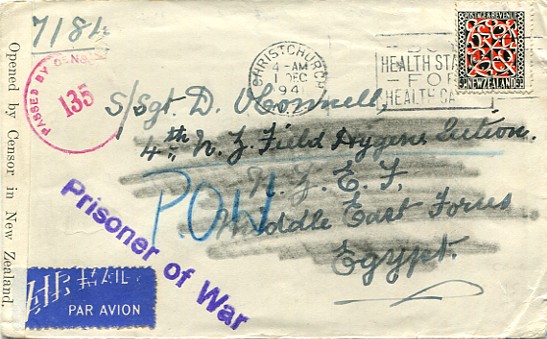 7184
Opened by Censor in New Zealand.
PASSED BY CENSOR
135
CHRISTCHURCH
4 - AM
1 DEC
1941
HEALTH STA
FOR
HEALTH CA
POSTAGE & REVENUE
NEW ZEALAND
S/Sgt. D. O'Connell,
4th N. Z. Field Hygene Section.
N. Z. E. F,
Middle East Forces
Egypt.
POW
Prisoner of War
AIR MAIL
PAR AVION